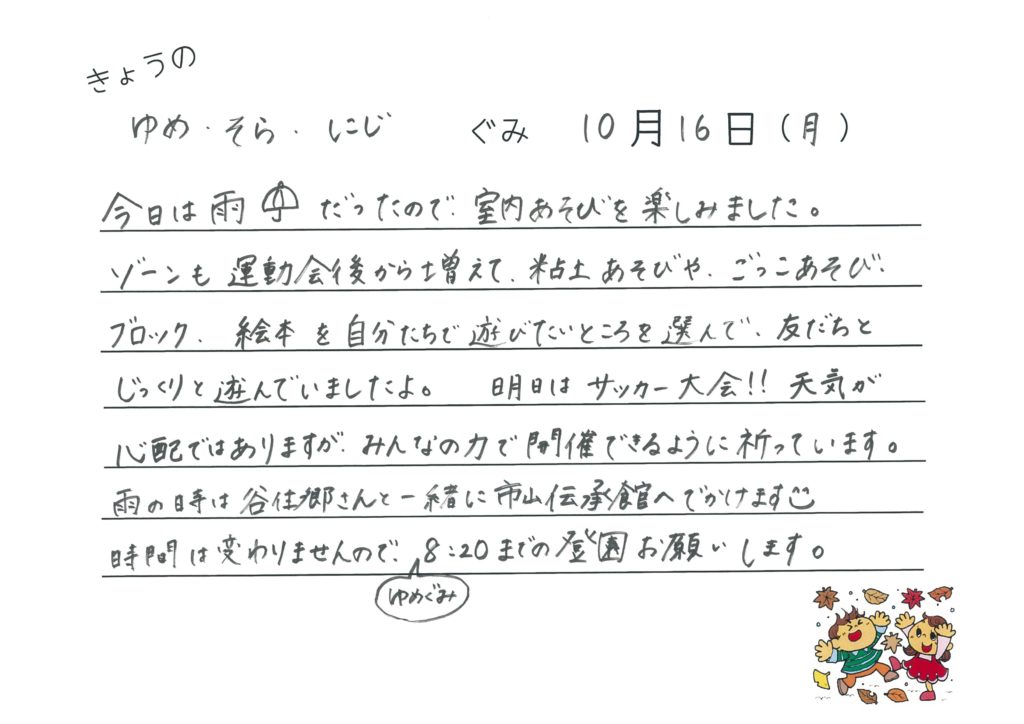 きょうの
ゆめ・そら・にじ ぐみ 10月16日(月)
今日は雨☂だったので、室内あそびを楽しみました。
ゾーンも運動会後から増えて、粘土あそびや、ごっこあそび、
ブロック、絵本を自分たちで遊びたいところを選んで、友だちと
じっくりと遊んでいましたよ。 明日はサッカー大会!! 天気が
心配ではありますが、みんなの力で開催できるように祈っています。
雨の時は谷住郷さんと一緒に市山伝承館へでかけます
時間は変わりませんので、8:20までの登園お願いします。
ゆめぐみ